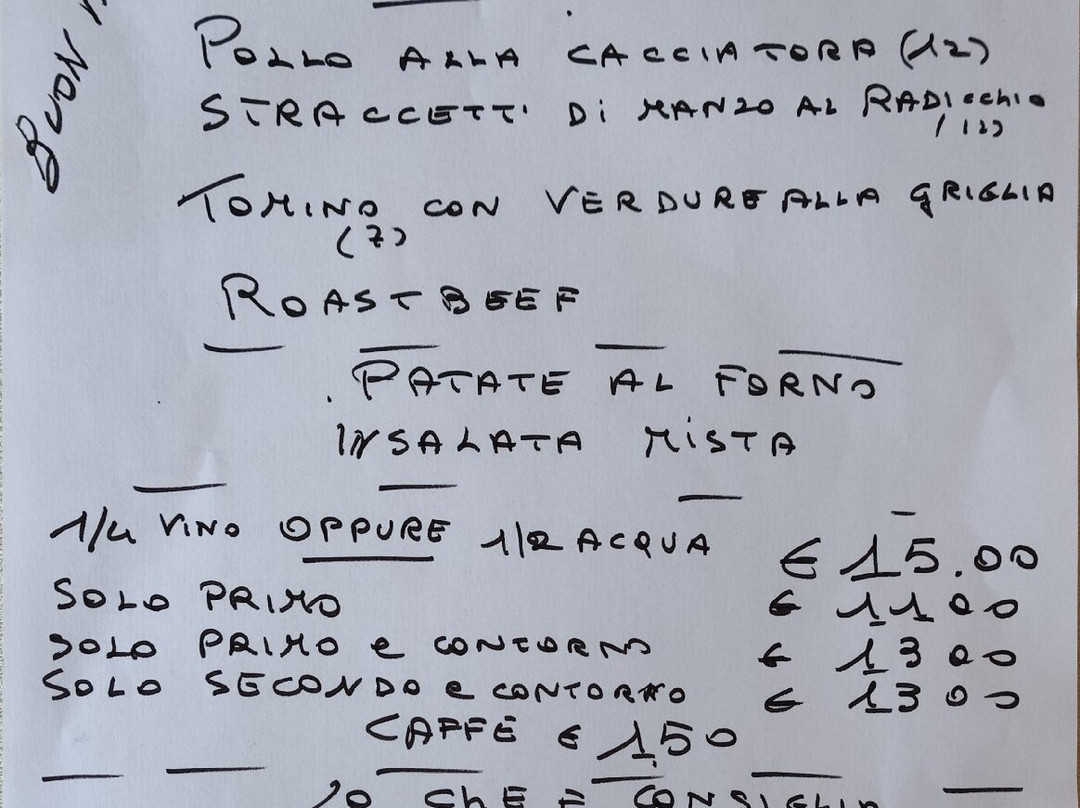 BUON
POLLO ALLA CACCIATORA (12)
STRACCETTI Di MANZO AL RADicchio
(12)
TOMINO CON VERDURE ALLA GRIGLIA
(7)
ROASTBEEF
PATATE AL FORNO
INSALATA MiSTA
1/4 VINO OPPURE 1/2 ACQUA € 15.00
SOLO PRIMO € 11 00
SOLO PRIMO e CONTORNO € 13 00
SOLO SECONDO e CONTORNO € 13 00
CAFFÈ € 1,50
CHE È CONSIGLIA